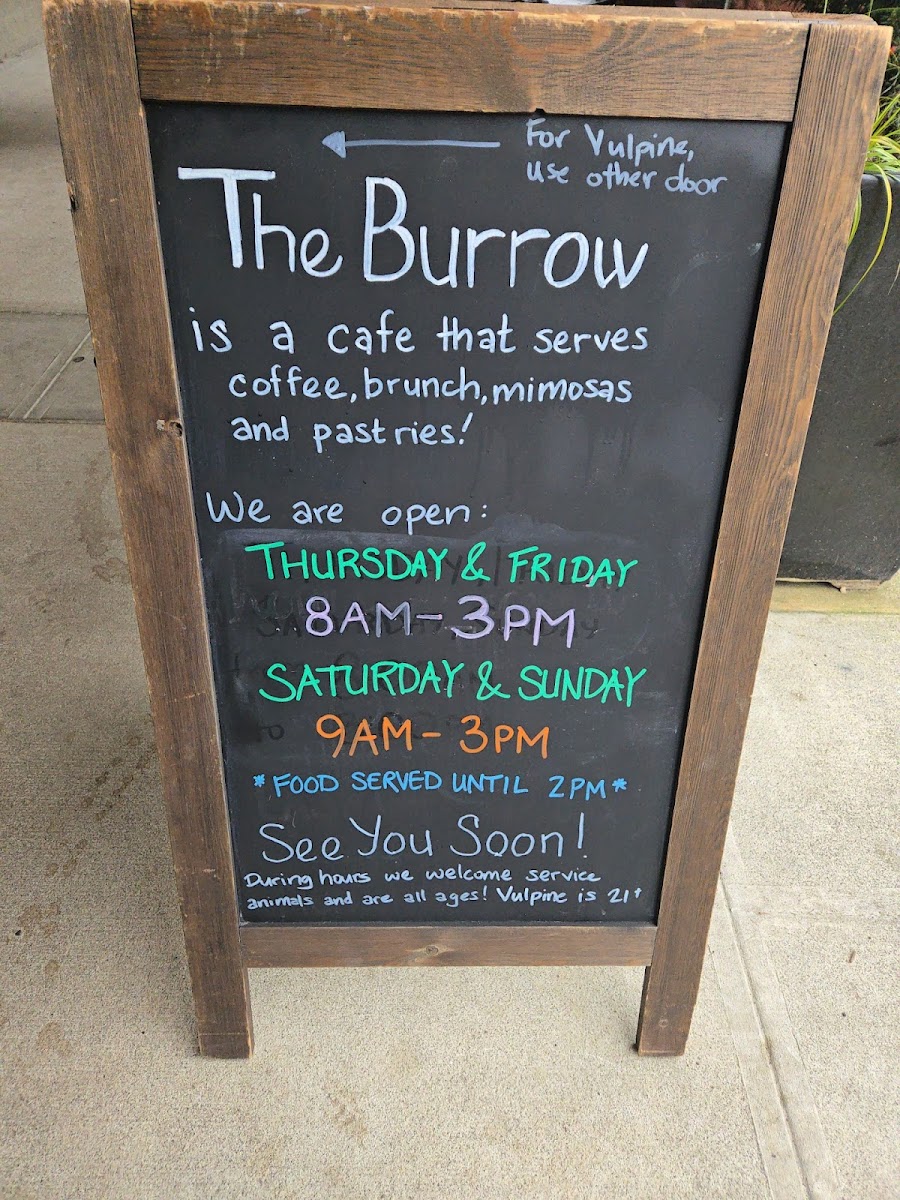 For Vulpine,
use other door
The Burrow
is a cafe that serves
coffee, brunch, mimosas
and pastries!
We are open:
THURSDAY & FRIDAY
8AM - 3PM
SATURDAY & SUNDAY
9AM - 3PM
*FOOD SERVED UNTIL 2PM*
See You Soon!
During hours we welcome service
animals and are all ages! Vulpine is 21+